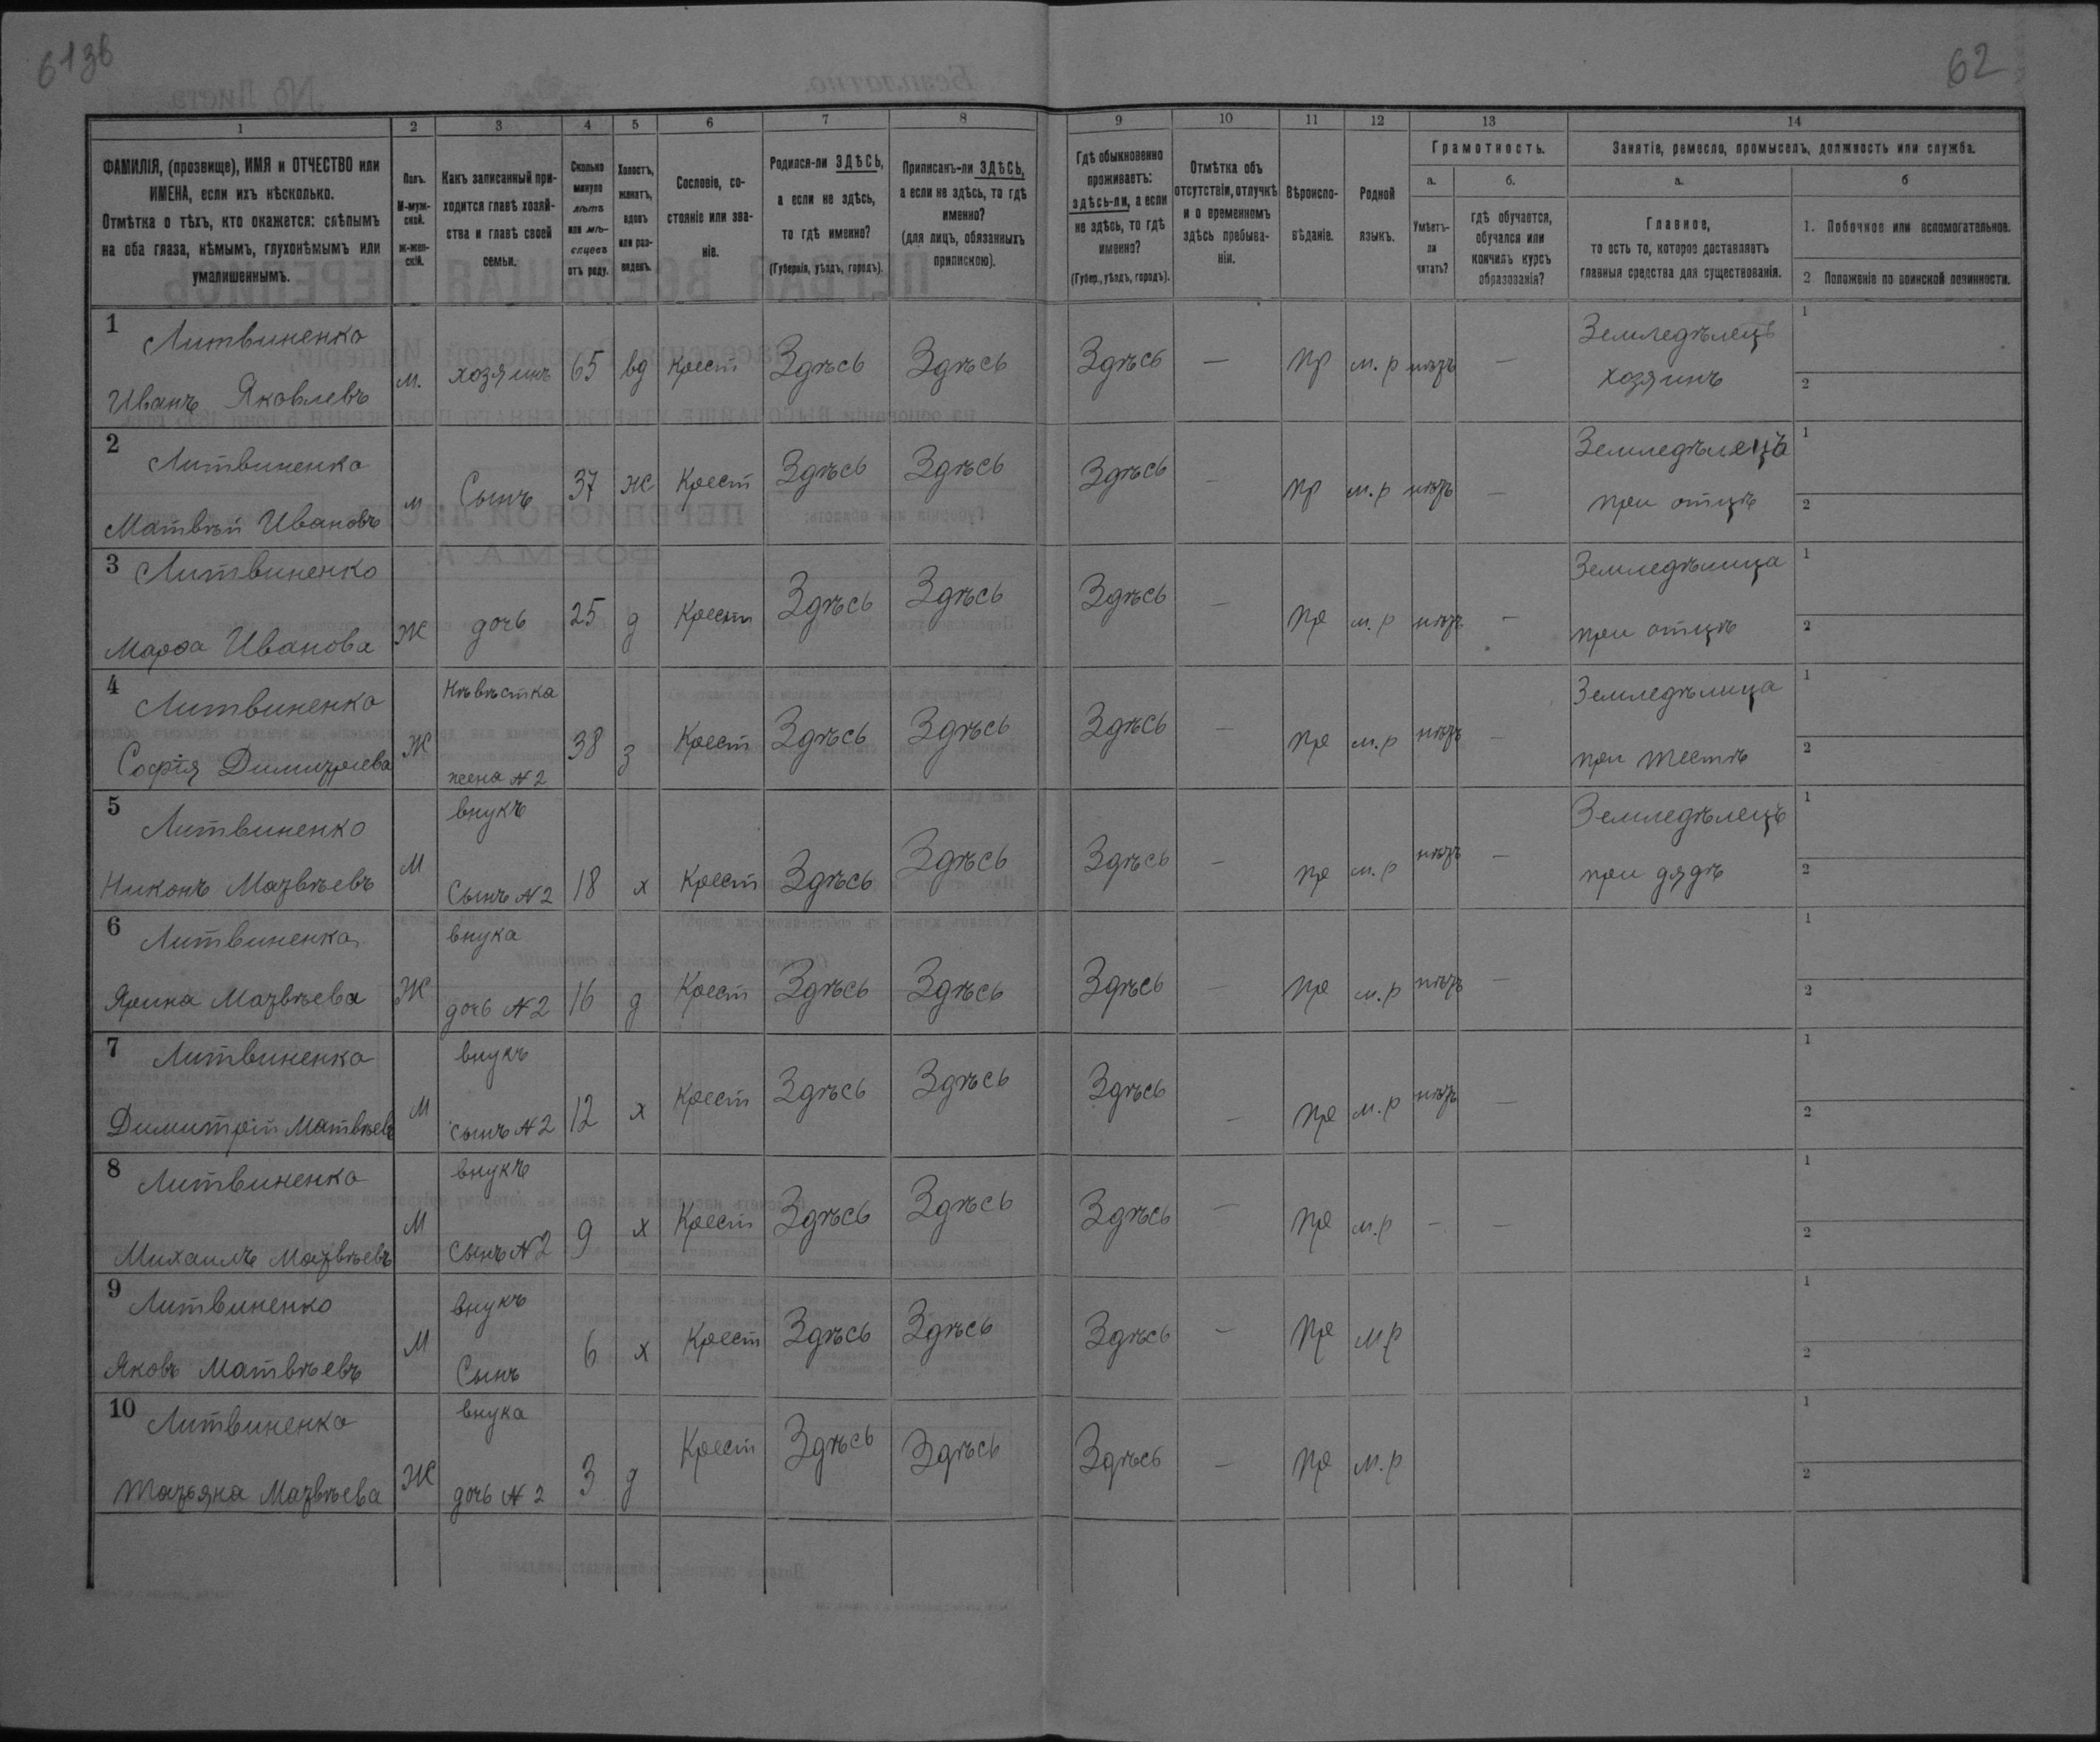 613б
62
1 2 3 4 5 6 7 8 9 10 11 12 13 14
ФАМИЛІЯ, (прозвище), ИМЯ и ОТЧЕСТВО или
ИМЕНА, если ихъ нѣсколько.
Отмѣтка о тѣхъ, кто окажется: слѣпымъ
на оба глаза, нѣмымъ, глухонѣмымъ или
умалишеннымъ.
Полъ.
М-муж-
ской.
ж-жен-
скій.
Какъ записанный при-
ходится главѣ хозяй-
ства и главѣ своей
семьи.
Сколько
минуло
лѣтъ
или мѣ-
сяцевъ
отъ роду.
Холостъ,
женатъ,
вдовъ
или раз-
веденъ.
Сословіе, со-
стояніе или зва-
ніе.
Родился-ли ЗДѢСЬ,
а если не здѣсь,
то гдѣ именно?
(Губернія, уѣздъ, городъ).
Приписанъ-ли ЗДѢСЬ,
а если не здѣсь, то гдѣ
именно?
(для лицъ, обязанныхъ
припискою).
Гдѣ обыкновенно
проживаетъ:
здѣсь-ли, а если
не здѣсь, то гдѣ
именно?
(Губер., уѣздъ, городъ).
Отмѣтка объ
отсутствіи, отлучкѣ
и о временномъ
здѣсь пребыва-
ніи.
Вѣроиспо-
вѣданіе.
Родной
языкъ.
Грамотность.
а.
Умѣетъ-
ли
читать?
б.
гдѣ обучается,
обучался или
кончилъ курсъ
образованія?
Занятіе, ремесло, промыселъ, должность или служба.
а.
Главное,
то есть то, которое доставляетъ
главныя средства для существованія.
б
1. Побочное или вспомогательное.
2 Положеніе по воинской повинности.
1 Литвиненко Землѣделецъ 1
Иванъ Яковлевъ м. хозяинъ 65 вд Крест Здѣсь Здѣсь Здѣсь — пр м. р нѣтъ — хозяинъ 2
2 Литвиненко Земледѣлецъ 1
Матвѣй Ивановъ м Сынъ 37 ж Крест Здѣсь Здѣсь Здѣсь - пр м. р нѣтъ — при отцѣ 2
3 Литвиненко Земледѣлица 1
Марѳа Иванова Ж дочь 25 д Крест Здѣсь Здѣсь Здѣсь — пр м. р нѣтъ — при отцѣ 2
4 Литвиненко Нѣвѣстка Земледѣлица 1
Софія Димитріева Ж жена N 2 38 з Крест Здѣсь Здѣсь Здѣсь — пр м. р нѣтъ — при тестѣ 2
5 Литвиненко внукъ Земледѣлецъ 1
Никонъ Матвѣевъ М Сынъ N 2 18 х Крест Здѣсь Здѣсь Здѣсь — пр м. р нѣтъ — при дядѣ 2
6 Литвиненко внука 1
Ярина Матвѣева Ж дочь N 2 16 д Крест Здѣсь Здѣсь Здѣсь — пр м. р нѣтъ — 2
7 Литвиненко внукъ 1
Димитрій Матвѣевъ М сынъ N 2 12 х Крест Здѣсь Здѣсь Здѣсь — пр м. р нѣтъ — 2
8 Литвиненко внукъ 1
Михаилъ Матвѣевъ М Сынъ N 2 9 х Крест Здѣсь Здѣсь Здѣсь — пр м. р — — 2
9 Литвиненко внукъ 1
Яковъ Матвѣевъ М Сынъ 6 х Крест Здѣсь Здѣсь Здѣсь — пр м р 2
10 Литвиненко внука 1
Татьяна Матвѣева Ж дочь N 2 3 д Крест Здѣсь Здѣсь Здѣсь — пр м. р 2